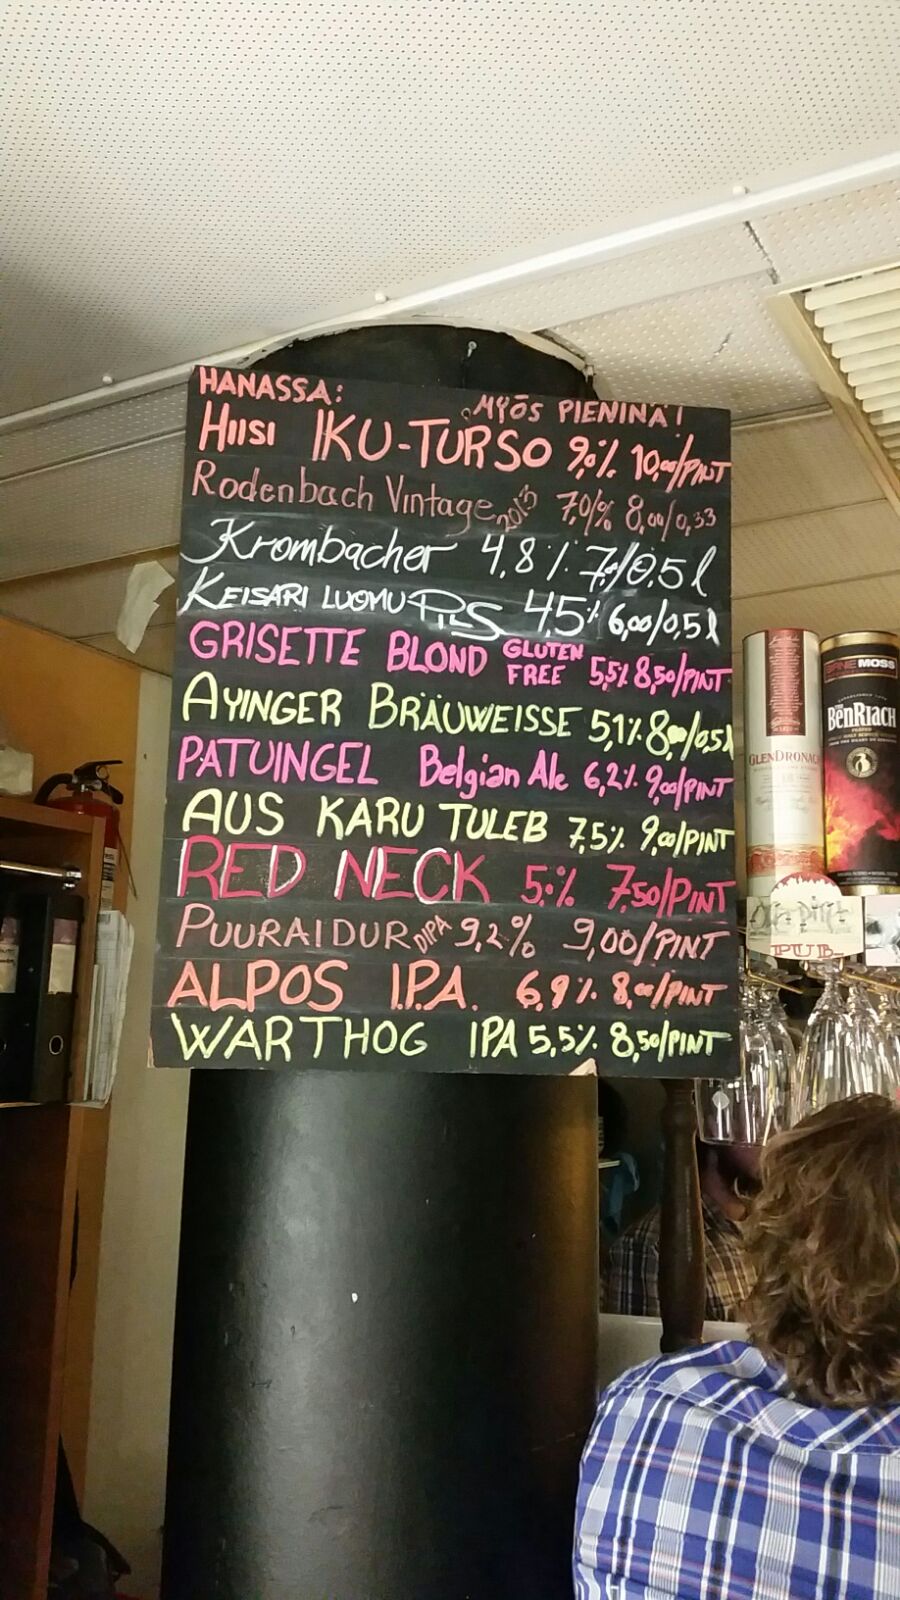 HANASSA:
MYÖS PIENINÄ!
HIISI IKU-TURSO 9,0% 10,00/PINT
Rodenbach Vintage 2013 7,0% 8,00/0,33
Krombacher 4,8% 7,-/0,5l
KEISARI LUOMU PILS 4,5% 6,00/0,5l
GRISETTE BLOND GLUTEN FREE 5,5% 8,50/PINT
AYINGER BRÄUWEISSE 5,1% 8,00/0,5l
PATUINGEL Belgian Ale 6,2% 9,00/PINT
AUS KARU TULEB 7,5% 9,00/PINT
RED NECK 5.% 7,50/PINT
PUURAIDUR DIPA 9,2% 9,00/PINT
ALPOS I.P.A. 6,9% 8,00/PINT
WARTHOG IPA 5,5% 8,50/PINT
GLENDRONACH
MOSS
THE BENRIACH
PUB